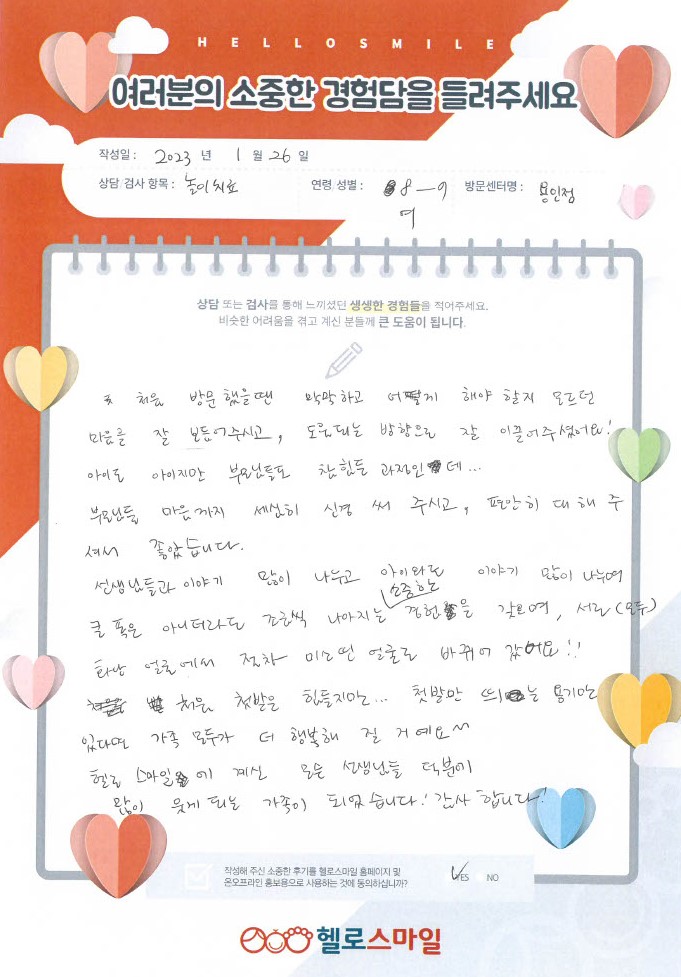 HELLOSMILE
여러분의 소중한 경험담을 들려주세요
작성일 : 2023 년 1 월 26 일
상담/검사 항목 : 놀이치료 연령/성별 : 8-9 여 방문센터명 : 용인점
상담 또는 검사를 통해 느끼셨던 생생한 경험들을 적어주세요.
비슷한 어려움을 겪고 계신 분들께 큰 도움이 됩니다.
처음 방문했을땐 막막하고 어떻게 해야 할지 모르던
마음을 잘 보듬어주시고, 도움되는 방향으로 잘 이끌어주셨어요!
아이도 아이지만 부모님들도 참 힘든 과정인데...
부모님들 마음까지 세심히 신경 써 주시고, 편안히 대해 주
셔서 좋았습니다.
선생님들과 이야기 많이 나누고 아이와도 이야기 많이 나누며
큰 폭은 아니더라도 조금씩 나아지는 소중한 경험을 갖으며, 서로(모두)
화난 얼굴에서 점차 미소띤 얼굴로 바뀌어 갔어요!!
처음 첫발은 힘들지만... 첫발만 띄는 용기만
있다면 가족 모두가 더 행복해 질 거예요~
헬로 스마일에 계신 모든 선생님들 덕분에
많이 웃게 되는 가족이 되었습니다! 감사합니다!
작성해 주신 소중한 후기를 헬로스마일 홈페이지 및
온오프라인 홍보용으로 사용하는 것에 동의하십니까? YES NO
헬로스마일